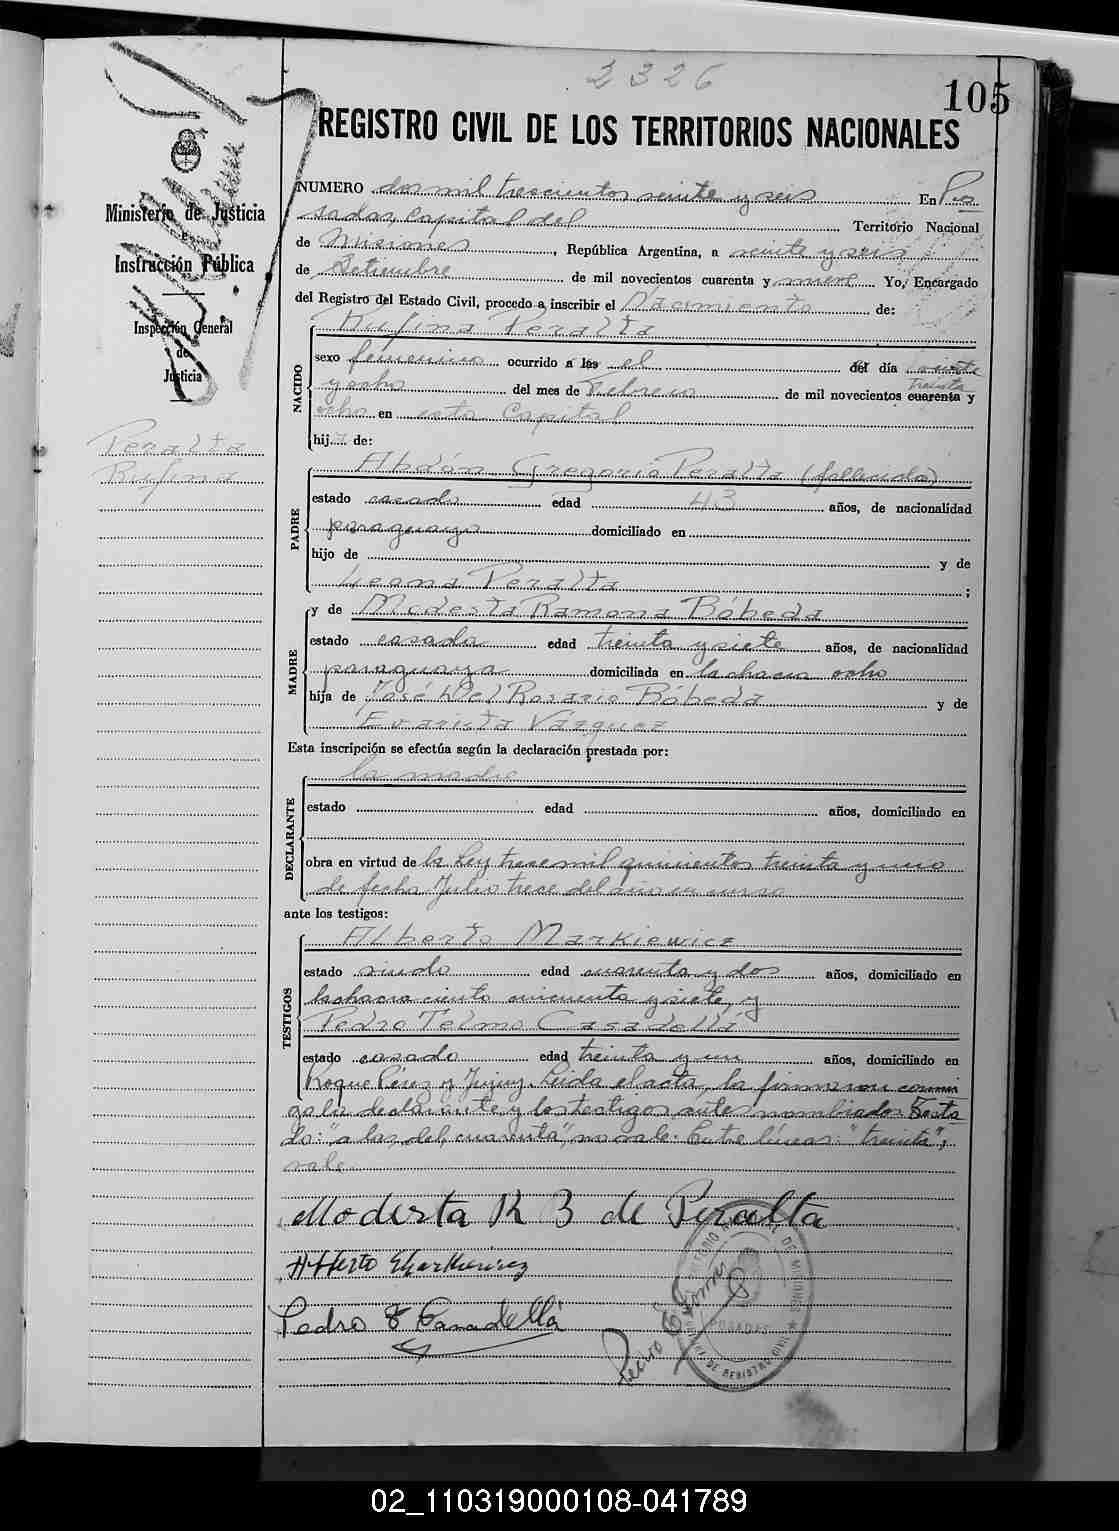 2326
105
REGISTRO CIVIL DE LOS TERRITORIOS NACIONALES
Ministerio de Justicia
e
Instrucción Pública
Inspección General
de
Justicia
Peralta
Rufina
NUMERO dos mil trescientos veinte y seis En Po
sadas, Capital del Territorio Nacional
de Misiones, República Argentina, a veinte y seis
de Setiembre de mil novecientos cuarenta y nueve Yo, Encargado
del Registro del Estado Civil, procedo a inscribir el Nacimiento de:
NACIDO
Rufina Peralta
sexo femenino ocurrido a las el del día veinte
treinta
y ocho del mes de Febrero de mil novecientos cuarenta y
ocho en esta Capital
hij.... de:
PADRE
Abdón Gregorio Peralta (fallecido)
estado casado edad 43 años, de nacionalidad
paraguayo domiciliado en
hijo de y de
Leona Peralta ;
MADRE
y de Modesta Ramona Bóbeda
estado casada edad treinta y siete años, de nacionalidad
paraguaya domiciliada en la chacra ocho
hija de José Del Rosario Bóbeda y de
Evarista Vázquez
Esta inscripción se efectúa según la declaración prestada por:
DECLARANTE
la madre
estado edad años, domiciliado en
obra en virtud de la Ley trece mil quinientos treinta y uno
de fecha Julio trece del año en curso
ante los testigos:
TESTIGOS
Alberto Markiewicz
estado viudo edad cuarenta y dos años, domiciliado en
la chacra ciento cincuenta y siete, y
Pedro Telmo Casadellá
estado casado edad treinta y un años, domiciliado en
Roque Pérez y Jujuy. Leida el acta, la firmaron conmi
go la declarante y los testigos antes nombrados. Testa
do: "a las, del, cuarenta", no vale. Entre líneas: "treinta",
vale.
Modesta R B de Peralta
Alberto Markiewicz
Pedro T Casadellá
POSADAS